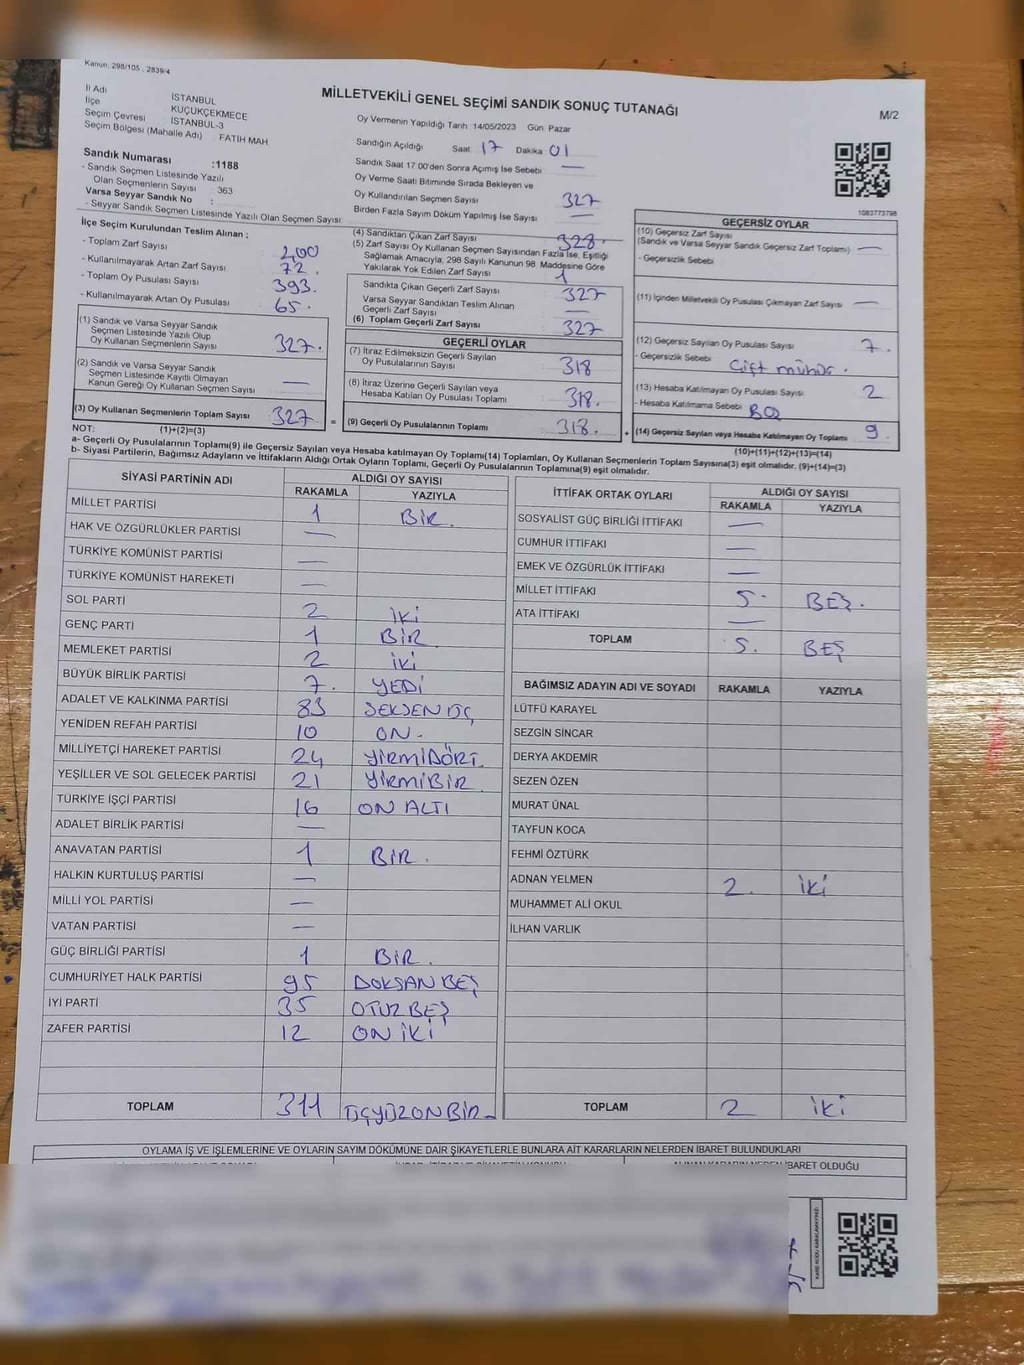 Kanun, 298/105 , 2839/4
MİLLETVEKİLİ GENEL SEÇİMİ SANDIK SONUÇ TUTANAĞI
M/2
İl Adı İSTANBUL
İlçe KÜÇÜKÇEKMECE
Seçim Çevresi İSTANBUL-3
Seçim Bölgesi (Mahalle Adı) FATİH MAH
Sandık Numarası :1188
- Sandık Seçmen Listesinde Yazılı
Olan Seçmenlerin Sayısı : 363
Varsa Seyyar Sandık No :
- Seyyar Sandık Seçmen Listesinde Yazılı Olan Seçmen Sayısı :
Oy Vermenin Yapıldığı Tarih 14/05/2023 Gün Pazar
Sandığın Açıldığı Saat 17 Dakika 01
Sandık Saat 17.00'den Sonra Açımış İse Sebebi —
Oy Verme Saati Bitiminde Sırada Bekleyen ve
Oy Kullandırılan Seçmen Sayısı 327
Birden Fazla Sayım Döküm Yapılmış İse Sayısı —
1083773798
İlçe Seçim Kurulundan Teslim Alınan ;
- Toplam Zarf Sayısı 400
- Kullanılmayarak Artan Zarf Sayısı 72.
- Toplam Oy Pusulası Sayısı 393.
- Kullanılmayarak Artan Oy Pusulası 65.
(1) Sandık ve Varsa Seyyar Sandık
Seçmen Listesinde Yazılı Olup
Oy Kullanan Seçmenlerin Sayısı 327.
(2) Sandık ve Varsa Seyyar Sandık
Seçmen Listesinde Kayıtlı Olmayan
Kanun Gereği Oy Kullanan Seçmen Sayısı —
(3) Oy Kullanan Seçmenlerin Toplam Sayısı 327 =
(4) Sandıktan Çıkan Zarf Sayısı 328.
(5) Zarf Sayısı Oy Kullanan Seçmen Sayısından Fazla İse, Eşitliği
Sağlamak Amacıyla, 298 Sayılı Kanunun 98. Maddesine Göre
Yakılarak Yok Edilen Zarf Sayısı 1
Sandıkta Çıkan Geçerli Zarf Sayısı 327
Varsa Seyyar Sandıktan Teslim Alınan
Geçerli Zarf Sayısı —
(6) Toplam Geçerli Zarf Sayısı 327
GEÇERLİ OYLAR
(7) İtiraz Edilmeksizin Geçerli Sayılan
Oy Pusulalarının Sayısı 318
(8) İtiraz Üzerine Geçerli Sayılan veya
Hesaba Katılan Oy Pusulası Toplamı 318.
(9) Geçerli Oy Pusulalarının Toplamı 318. +
GEÇERSİZ OYLAR
(10) Geçersiz Zarf Sayısı
(Sandık ve Varsa Seyyar Sandık Geçersiz Zarf Toplamı) —
- Geçersizlik Sebebi
(11) İçinden Milletvekili Oy Pusulası Çıkmayan Zarf Sayısı —
(12) Geçersiz Sayılan Oy Pusulası Sayısı 7.
- Geçersizlik Sebebi Çift mühür.
(13) Hesaba Katılmayan Oy Pusulası Sayısı 2
- Hesaba Katılmama Sebebi
(14) Geçersiz Sayılan veya Hesaba Katılmayan Oy Toplamı 9.
NOT: (1)+(2)=(3) (10)+(11)+(12)+(13)=(14)
a- Geçerli Oy Pusulalarının Toplamı(9) ile Geçersiz Sayılan veya Hesaba katılmayan Oy Toplamı(14) Toplamları, Oy Kullanan Seçmenlerin Toplam Sayısına(3) eşit olmalıdır. (9)+(14)=(3)
b- Siyasi Partilerin, Bağımsız Adayların ve İttifakların Aldığı Ortak Oyların Toplamı, Geçerli Oy Pusulalarının Toplamına(9) eşit olmalıdır.
SİYASİ PARTİNİN ADI ALDIĞI OY SAYISI
RAKAMLA YAZIYLA
MİLLET PARTİSİ 1 BİR.
HAK VE ÖZGÜRLÜKLER PARTİSİ —
TÜRKİYE KOMÜNİST PARTİSİ —
TÜRKİYE KOMÜNİST HAREKETİ —
SOL PARTİ 2 İKİ
GENÇ PARTİ 1 BİR
MEMLEKET PARTİSİ 2 İKİ
BÜYÜK BİRLİK PARTİSİ 7. YEDİ
ADALET VE KALKINMA PARTİSİ 83 SEKSEN ÜÇ
YENİDEN REFAH PARTİSİ 10 ON-
MİLLİYETÇİ HAREKET PARTİSİ 24 YİRMİDÖRT.
YEŞİLLER VE SOL GELECEK PARTİSİ 21 YİRMİBİR
TÜRKİYE İŞÇİ PARTİSİ 16 ON ALTI
ADALET BİRLİK PARTİSİ —
ANAVATAN PARTİSİ 1 BİR.
HALKIN KURTULUŞ PARTİSİ —
MİLLİ YOL PARTİSİ —
VATAN PARTİSİ —
GÜÇ BİRLİĞİ PARTİSİ 1 BİR.
CUMHURİYET HALK PARTİSİ 95 DOKSAN BEŞ
İYİ PARTİ 35 OTUZ BEŞ
ZAFER PARTİSİ 12 ON İKİ
TOPLAM 311 ÜÇYÜZONBİR-
İTTİFAK ORTAK OYLARI ALDIĞI OY SAYISI
RAKAMLA YAZIYLA
SOSYALİST GÜÇ BİRLİĞİ İTTİFAKI —
CUMHUR İTTİFAKI —
EMEK VE ÖZGÜRLÜK İTTİFAKI —
MİLLET İTTİFAKI 5. BEŞ.
ATA İTTİFAKI —
TOPLAM 5. BEŞ
BAĞIMSIZ ADAYIN ADI VE SOYADI RAKAMLA YAZIYLA
LÜTFÜ KARAYEL
SEZGİN SİNCAR
DERYA AKDEMİR
SEZEN ÖZEN
MURAT ÜNAL
TAYFUN KOCA
FEHMİ ÖZTÜRK
ADNAN YELMEN 2. İKİ
MUHAMMET ALİ OKUL
İLHAN VARLIK
TOPLAM 2 İKİ
OYLAMA İŞ VE İŞLEMLERİNE VE OYLARIN SAYIM DÖKÜMÜNE DAİR ŞİKAYETLERLE BUNLARA AİT KARARLARIN NELERDEN İBARET BULUNDUKLARI
İBARET OLDUĞU